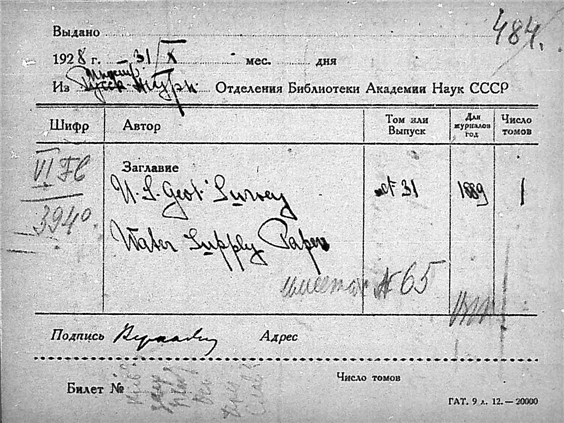 484.
Выдано
1928 г. 31/X мес. дня
Из журн. Отделения Библиотеки Академии Наук СССР
Шифр Автор Том или Выпуск Для журналов год Число томов
VI FC
3940
Заглавие
U. S. Geol. Survey № 31 1889 1
Water Supply Paper
имеется № 65
Подпись Адрес
Билет № Число томов
ГАТ. 9 л. 12. — 20000